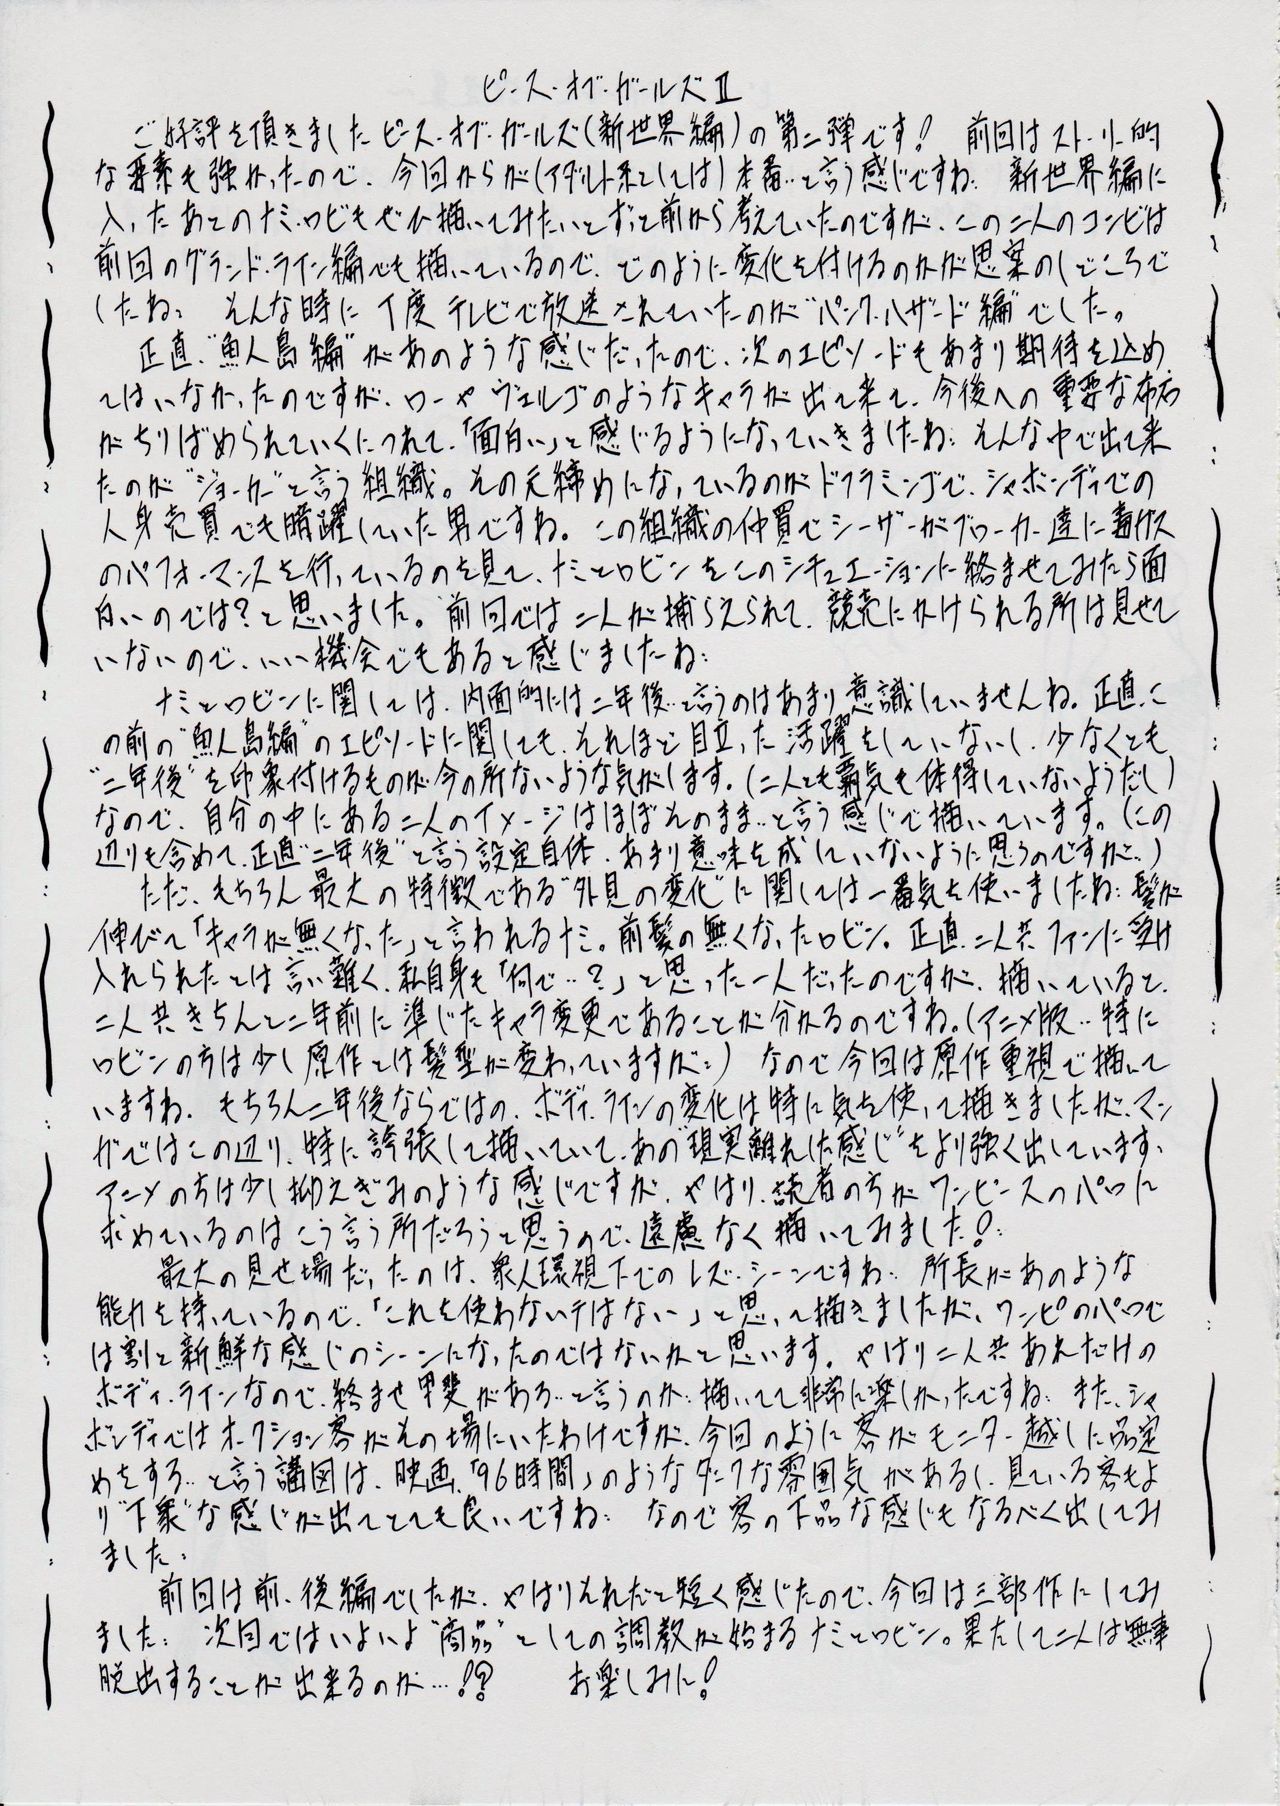 ピース・オブ・ガールズⅡ
ご好評を頂きましたピース・オブ・ガールズ(新世界編)の第二弾です! 前回はストーリー的
な要素も強かったので、今回からが(アダルト系としては)本番…と言う感じですね。新世界編に
入ったあとのナミ・ロビもぜひ描いてみたいとずっと前から考えていたのですが、この二人のコンビは
前回のグランド・ライン編でも描いているので、どのように変化を付けるのかが思案のしどころで
したね。そんな時に丁度テレビで放送されていたのが“パンク・ハザード編”でした。
正直、“魚人島編”があのような感じだったので、次のエピソードもあまり期待を込め
てはいなかったのですが、ローやヴェルゴのようなキャラが出て来て、今後への重要な布石
がちりばめられていくにつれて、「面白い」と感じるようになっていきましたね。そんな中で出て来
たのが“ジョーカー”と言う組織。その元締めになっているのがドフラミンゴで、シャボンディでの
人身売買でも暗躍していた男ですね。この組織の仲買でシーザーがブローカー達に毒ガス
のパフォーマンスを行っているのを見て、ナミとロビンをこのシチュエーションに絡ませてみたら面
白いのでは?と思いました。前回では二人が捕らえられて、競売にかけられる所は見せて
いないので、いい機会でもあると感じましたね。
ナミとロビンに関しては、内面的には二年後…と言うのはあまり意識していませんね。正直、こ
の前の“魚人島編”のエピソードに関しても、それほど目立った活躍をしていないし、少なくとも
“二年後”を印象付けるものが今の所ないような気がします。(二人とも覇気も体得していないようだし)
なので、自分の中にある二人のイメージはほぼそのまま…と言う感じで描いています。(この
辺りも含めて、正直“二年後”と言う設定自体、あまり意味を成していないように思うのですが…)
ただ、もちろん最大の特徴である“外見の変化”に関しては一番気を使いましたね。髪が
伸びて「キャラが無くなった」と言われるナミ。前髪の無くなったロビン。正直、二人共ファンに受け
入れられたとは言い難く、私自身も「何で…?」と思った一人だったのですが、描いていると、
二人共きちんと二年前に準じたキャラ変更であることが分かるのですね。(アニメ版…特に
ロビンの方は少し原作とは髪型が変わっていますが…) なので今回は原作重視で描いて
いますね。もちろん二年後ならではの、ボディ・ラインの変化は特に気を使って描きましたが、マン
ガではこの辺り、特に誇張して描いていて、あの“現実離れした感じ”をより強く出しています。
アニメの方は少し抑えぎみのような感じですが、やはり、読者の方がワンピースのパロに
求めているのはこう言う所だろうと思うので、遠慮なく描いてみました!
最大の見せ場だったのは、衆人環視下でのレズ・シーンですね。所長があのような
能力を持っているので、「これを使わないテはない」と思って描きましたが、ワンピのパロで
は割と新鮮な感じのシーンになったのではないかと思います。やはり二人共あれだけの
ボディ・ラインなので、絡ませ甲斐がある…と言うのか、描いてて非常に楽しかったですね。また、シャ
ボンディではオークション客がその場にいたわけですが、今回のように客がモニター越しに品定
めをする…と言う講図は、映画「96時間」のようなダークな雰囲気があるし、見ている客もよ
り“下衆”な感じが出てとても良いですね。なので客の下品な感じもなるべく出してみ
ました。
前回は前、後編でしたが、やはりそれだと短く感じたので、今回は三部作にしてみ
ました。次回ではいよいよ“商品”としての調教が始まるナミとロビン。果たして二人は無事
脱出することが出来るのか…!? お楽しみに!